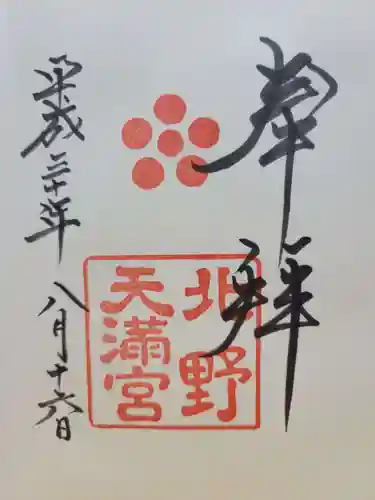 奉拝
北野
天満宮
平成三十年
八月十六日